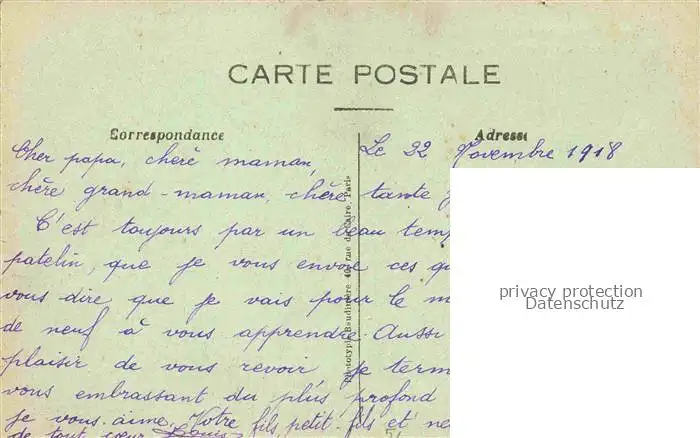 CARTE POSTALE
Correspondance
Adresse
Le 22 Novembre 1918
Cher papa, chère maman,
chère grand-maman, chère tante
C'est toujours par un beau temp
patelin, que je vous envoie ces qu
vous dire que je vais pour le m
de neuf à vous apprendre. Aussi
plaisir de vous revoir je term
vous embrassant du plus profond
je vous aime. Votre fils, petit-fils et ne
de tout cœur Louis
Phototypie Baudinière rue du Caire, Paris
privacy protection
Datenschutz